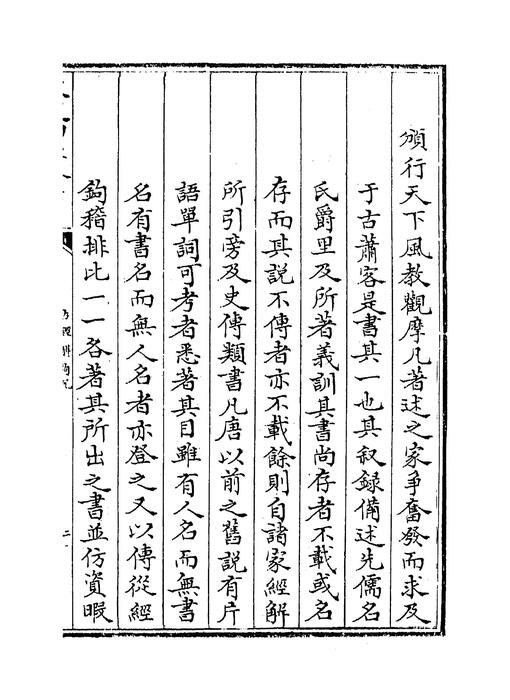 頒行天下風教觀摩凡著述之家爭奮發而求及
于古蕭客是書其一也其叙録備述先儒名
氏爵里及所著義訓其書尚存者不載或名
存而其說不傳者亦不載餘則自諸家經解
所引旁及史傳類書凡唐以前之舊說有片
語單詞可考者悉著其目雖有人名而無書
名有書名而無人名者亦登之又以傳從經
鉤稽排比一一各著其所出之書並仿資暇